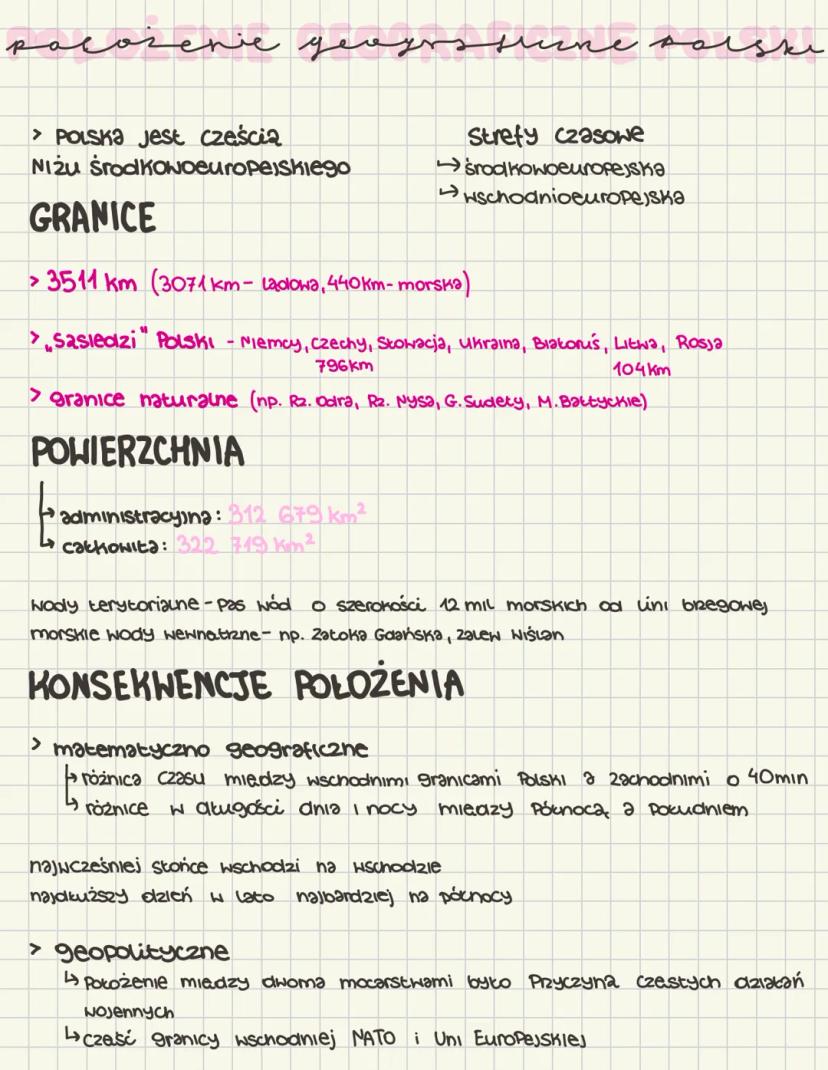 POŁOŻENIE GEOGRAFICZNE POLSKI
> POLSKA jest częścią
Niżu środkowoeuropejskiego
Strefy czasowe
↳ środkowoeuropejska
↳ wschodnioeuropejska
GRANICE
> 3511 km (3071 km - lądowa, 440km - morska)
> „sąsiedzi" Polski - Niemcy, Czechy, Słowacja, Ukraina, Białoruś, Litwa, Rosja
796km 104km
> granice naturalne (np. Rz. Odra, Rz. Nysa, G. Sudety, M. Bałtyckie)
POWIERZCHNIA
↳ administracyjna: 312 679 km²
↳ całkowita: 322 719 km²
wody terytorialne - pas wód o szerokości 12 mil morskich od lini brzegowej
morskie wody wewnątrzne - np. Zatoka Gdańska, zalew Wiślan
KONSEKWENCJE POŁOŻENIA
> matematyczno geograficzne
↳ różnica czasu między wschodnimi granicami Polski a zachodnimi o 40min
↳ różnice w długości dnia i nocy między Północą a Południem
najwcześniej słońce wschodzi na wschodzie
najdłuższy dzień w lato najbardziej na północy
> geopolityczne
↳ Położenie między dwoma mocarstwami było Przyczyną częstych działań
wojennych
↳ część granicy wschodniej NATO i Uni Europejskiej